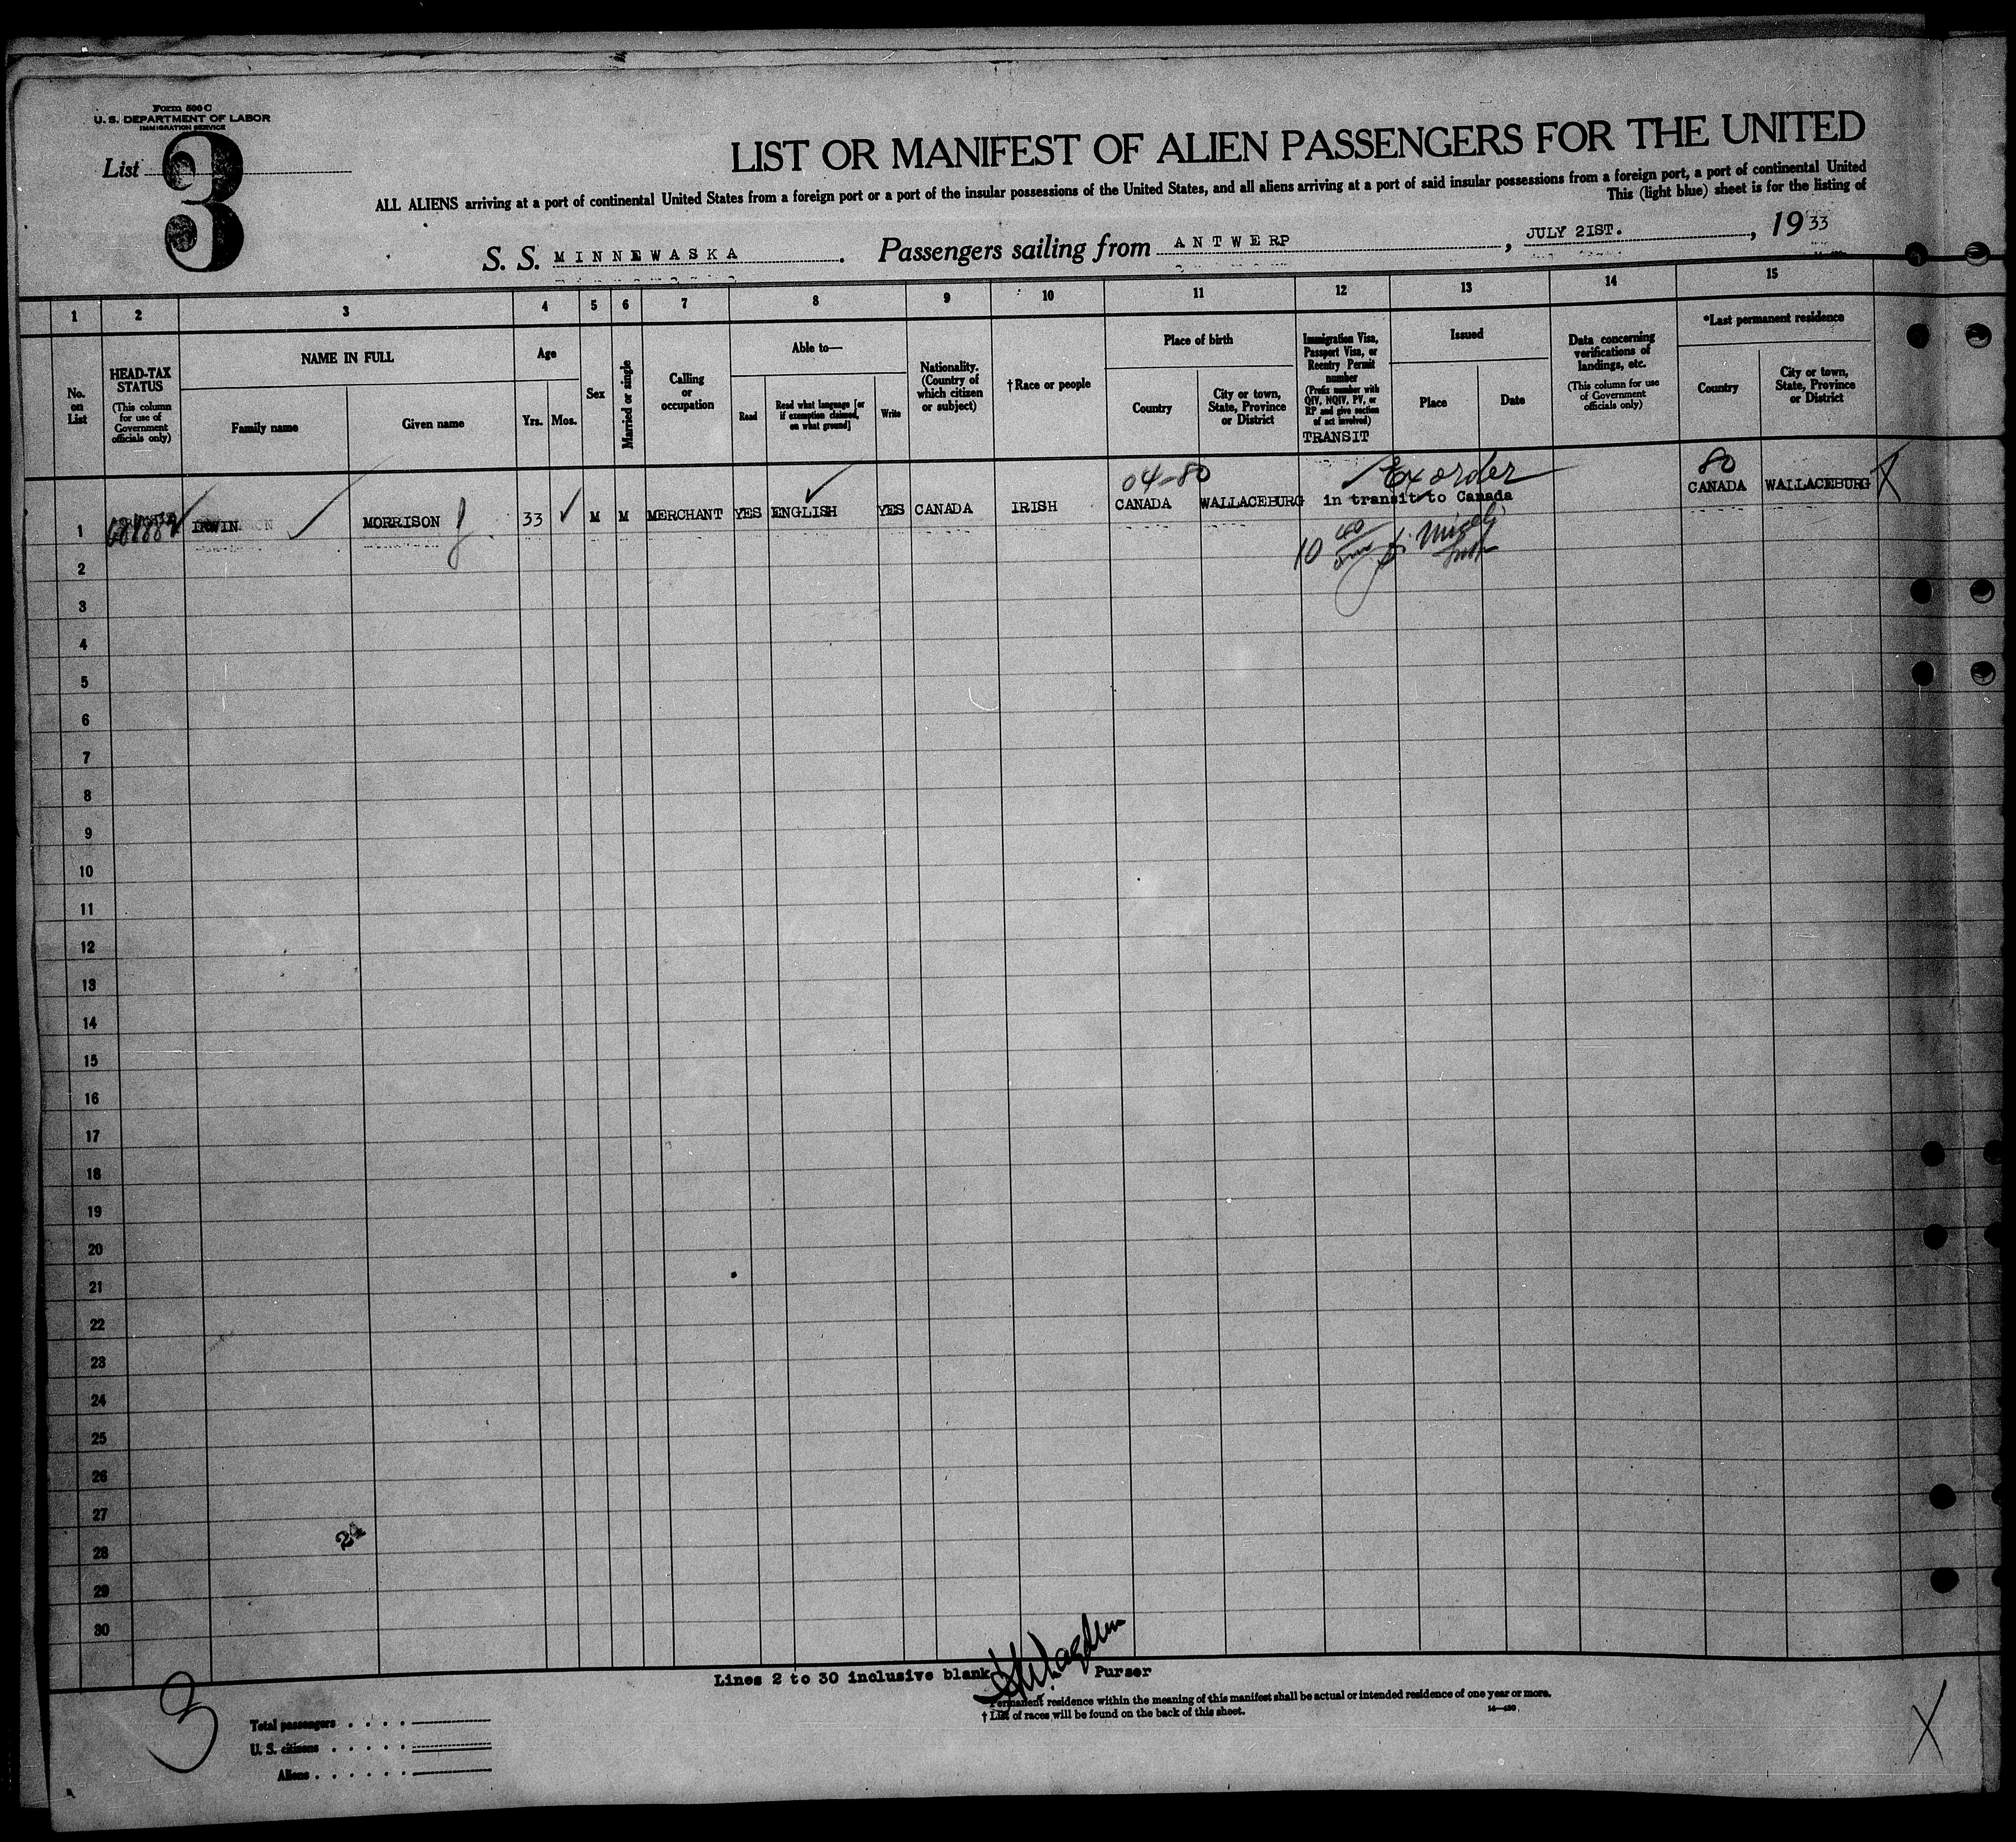 Form 500 C
U. S. DEPARTMENT OF LABOR
IMMIGRATION SERVICE
List 3
LIST OR MANIFEST OF ALIEN PASSENGERS FOR THE UNITED
ALL ALIENS arriving at a port of continental United States from a foreign port or a port of the insular possessions of the United States, and all aliens arriving at a port of said insular possessions from a foreign port, a port of continental United
This (light blue) sheet is for the listing of
S. S. MINNEWASKA . Passengers sailing from ANTWERP , JULY 21ST. , 1933
1 2 3 4 5 6 7 8 9 10 11 12 13 14 15
No. on List
HEAD-TAX STATUS
(This column for use of Government officials only)
NAME IN FULL
Family name
Given name
Age
Yrs.
Mos.
Sex
Married or single
Calling or occupation
Able to—
Read
Read what language [or if exemption claimed, on what ground]
Write
Nationality. (Country of which citizen or subject)
†Race or people
Place of birth
Country
City or town, State, Province or District
Immigration Visa, Passport Visa, or Reentry Permit number
(Prefix number with QIV, NQIV, PV, or RP and give section of act involved)
TRANSIT
Issued
Place
Date
Data concerning verifications of landings, etc.
(This column for use of Government officials only)
*Last permanent residence
Country
City or town, State, Province or District
04-80
Ex order
80
1 IRWIN MORRISON 33 M M MERCHANT YES ENGLISH YES CANADA IRISH CANADA WALLACEBURG in transit to Canada CANADA WALLACEBURG X
10 40
2
3
4
5
6
7
8
9
10
11
12
13
14
15
16
17
18
19
20
21
22
23
24
25
26
27
28
29
30
Lines 2 to 30 inclusive blank
Purser
Permanent residence within the meaning of this manifest shall be actual or intended residence of one year or more.
† List of races will be found on the back of this sheet.
3
Total passengers
U. S. citizens
Aliens
X